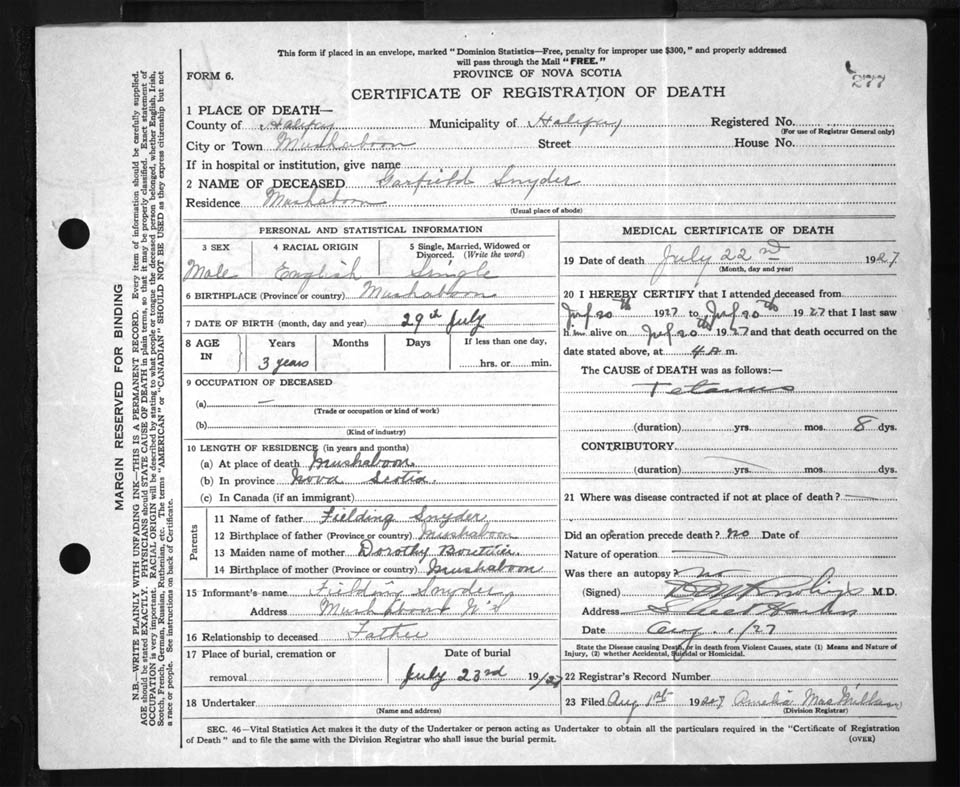 This form if placed in an envelope, marked "Dominion Statistics—Free, penalty for improper use $300," and properly addressed
will pass through the Mail "FREE."
FORM 6.
PROVINCE OF NOVA SCOTIA
277
CERTIFICATE OF REGISTRATION OF DEATH
1 PLACE OF DEATH—
County of Halifax Municipality of Halifax Registered No.
(For use of Registrar General only)
City or Town Mushaboon Street House No.
If in hospital or institution, give name
2 NAME OF DECEASED Garfield Snyder
Residence Mushaboon
(Usual place of abode)
PERSONAL AND STATISTICAL INFORMATION
3 SEX 4 RACIAL ORIGIN 5 Single, Married, Widowed or
Divorced. (Write the word)
Male English Single
6 BIRTHPLACE (Province or country) Mushaboon
7 DATE OF BIRTH (month, day and year) 29th July
8 AGE IN Years Months Days If less than one day,
3 years hrs. or min.
9 OCCUPATION OF DECEASED
(a) —
(Trade or occupation or kind of work)
(b)
(Kind of industry)
10 LENGTH OF RESIDENCE (in years and months)
(a) At place of death Mushaboon
(b) In province Nova Scotia.
(c) In Canada (if an immigrant)
Parents
11 Name of father Fielding Snyder
12 Birthplace of father (Province or country) Mushaboon
13 Maiden name of mother Dorothy
14 Birthplace of mother (Province or country) Mushaboon
15 Informant's name Fielding Snyder
Address Mushaboon N.S
16 Relationship to deceased Father
17 Place of burial, cremation or Date of burial
removal July 23rd 19/27
18 Undertaker
(Name and address)
MEDICAL CERTIFICATE OF DEATH
19 Date of death July 22nd 1927
(Month, day and year)
20 I HEREBY CERTIFY that I attended deceased from
20th 1927 to 20th 1927 that I last saw
him alive on 20th 1927 and that death occurred on
the date stated above, at 4 a m.
The CAUSE OF DEATH was as follows:—
Tetanus
(duration) yrs. mos. 8 dys.
CONTRIBUTORY
(duration) yrs. mos. dys.
21 Where was disease contracted if not at place of death?
Did an operation precede death? no Date of
Nature of operation
Was there an autopsy? no
(Signed) M.D.
Address Sheet Harbor
Date Aug. 1/27
State the Disease causing Death, or in death from Violent Causes, state (1) Means and Nature of
Injury, (2) whether Accidental, Suicidal or Homicidal.
22 Registrar's Record Number
23 Filed Aug 1st 1927 Amelia MacMillan
(Division Registrar)
SEC. 46—Vital Statistics Act makes it the duty of the Undertaker or person acting as Undertaker to obtain all the particulars required in the "Certificate of Registration
of Death" and to file the same with the Division Registrar who shall issue the burial permit.
(OVER)
MARGIN RESERVED FOR BINDING
N.B.—WRITE PLAINLY WITH UNFADING INK—THIS IS A PERMANENT RECORD. Every item of information should be carefully supplied.
AGE should be stated EXACTLY. PHYSICIANS should STATE CAUSE OF DEATH in plain terms, so that it may be properly classified. Exact statement of
OCCUPATION is very important. RACIAL ORIGIN will be described by stating to what people or tongue the deceased person belonged, whether English, Irish,
Scotch, French, German, Russian, Ruthenian, etc. The terms "AMERICAN" or "CANADIAN" SHOULD NOT BE USED as they express citizenship but not
a race or people. See instructions on back of Certificate.